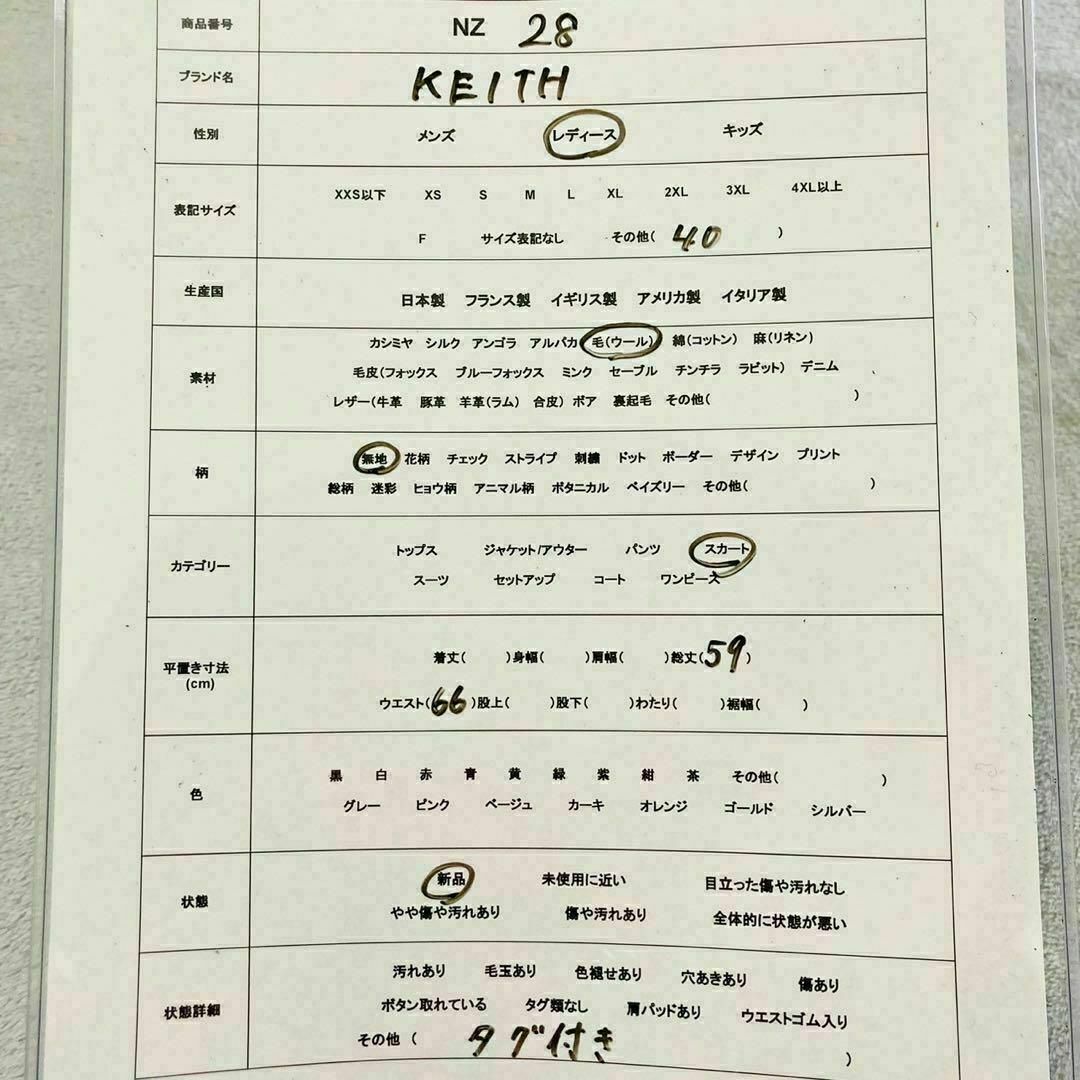 商品番号 NZ 28
ブランド名 KEITH
性別 メンズ レディース キッズ
表記サイズ
XXS以下 XS S M L XL 2XL 3XL 4XL以上
F サイズ表記なし その他( 40 )
生産国 日本製 フランス製 イギリス製 アメリカ製 イタリア製
素材
カシミヤ シルク アンゴラ アルパカ 毛(ウール) 綿(コットン) 麻(リネン)
毛皮(フォックス ブルーフォックス ミンク セーブル チンチラ ラビット) デニム
レザー(牛革 豚革 羊革(ラム) 合皮) ボア 裏起毛 その他( )
柄
無地 花柄 チェック ストライプ 刺繍 ドット ボーダー デザイン プリント
総柄 迷彩 ヒョウ柄 アニマル柄 ボタニカル ペイズリー その他( )
カテゴリー
トップス ジャケット/アウター パンツ スカート
スーツ セットアップ コート ワンピース
平置き寸法
(cm)
着丈( )身幅( )肩幅( )総丈(59)
ウエスト(66)股上( )股下( )わたり( )裾幅( )
色
黒 白 赤 青 黄 緑 紫 紺 茶 その他( )
グレー ピンク ベージュ カーキ オレンジ ゴールド シルバー
状態
新品 未使用に近い 目立った傷や汚れなし
やや傷や汚れあり 傷や汚れあり 全体的に状態が悪い
状態詳細
汚れあり 毛玉あり 色褪せあり 穴あきあり 傷あり
ボタン取れている タグ類なし 肩パッドあり ウエストゴム入り
その他 ( タグ付き )